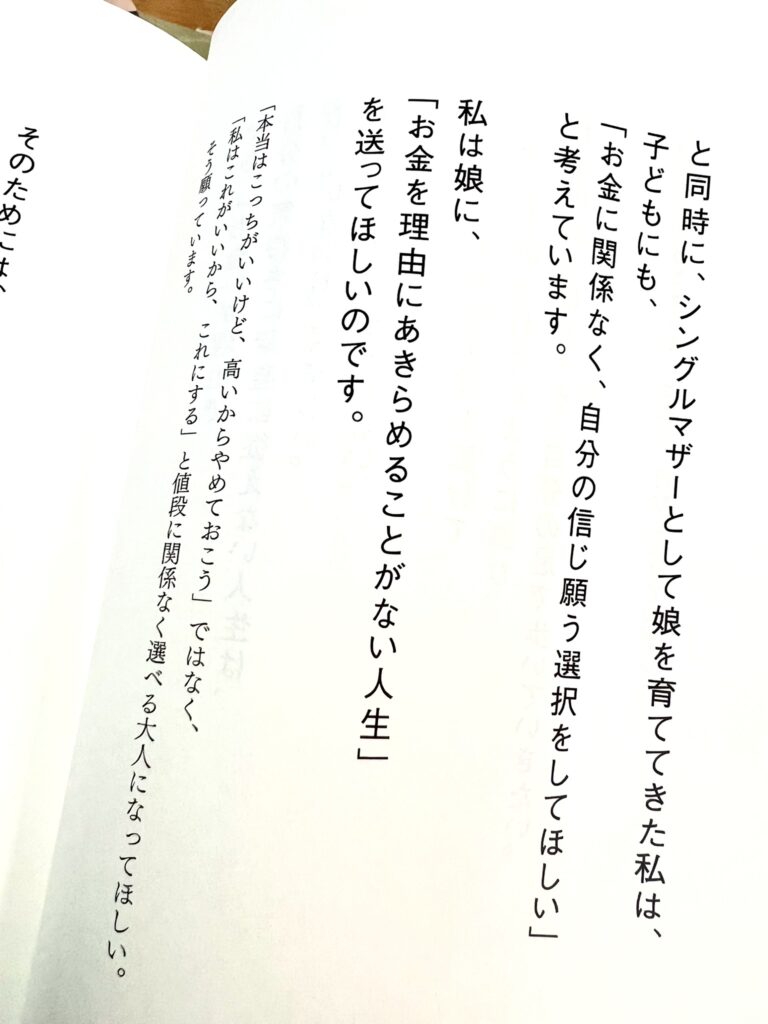 と同時に、シングルマザーとして娘を育ててきた私は、
子どもにも、
「お金に関係なく、自分の信じ願う選択をしてほしい」
と考えています。
私は娘に、
「お金を理由にあきらめることがない人生」
を送ってほしいのです。
「本当はこっちがいいけど、高いからやめておこう」ではなく、
「私はこれがいいから、これにする」と値段に関係なく選べる大人になってほしい。
そう願っています。
そのためには、